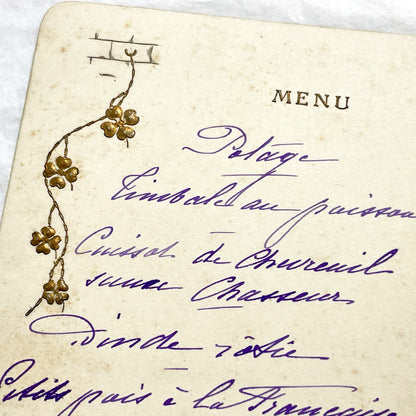 MENU
Potage
Timbale au poisson
Cuissot de Chevreuil
sauce Chasseur
Dinde rôtie
Petits pois à la Française